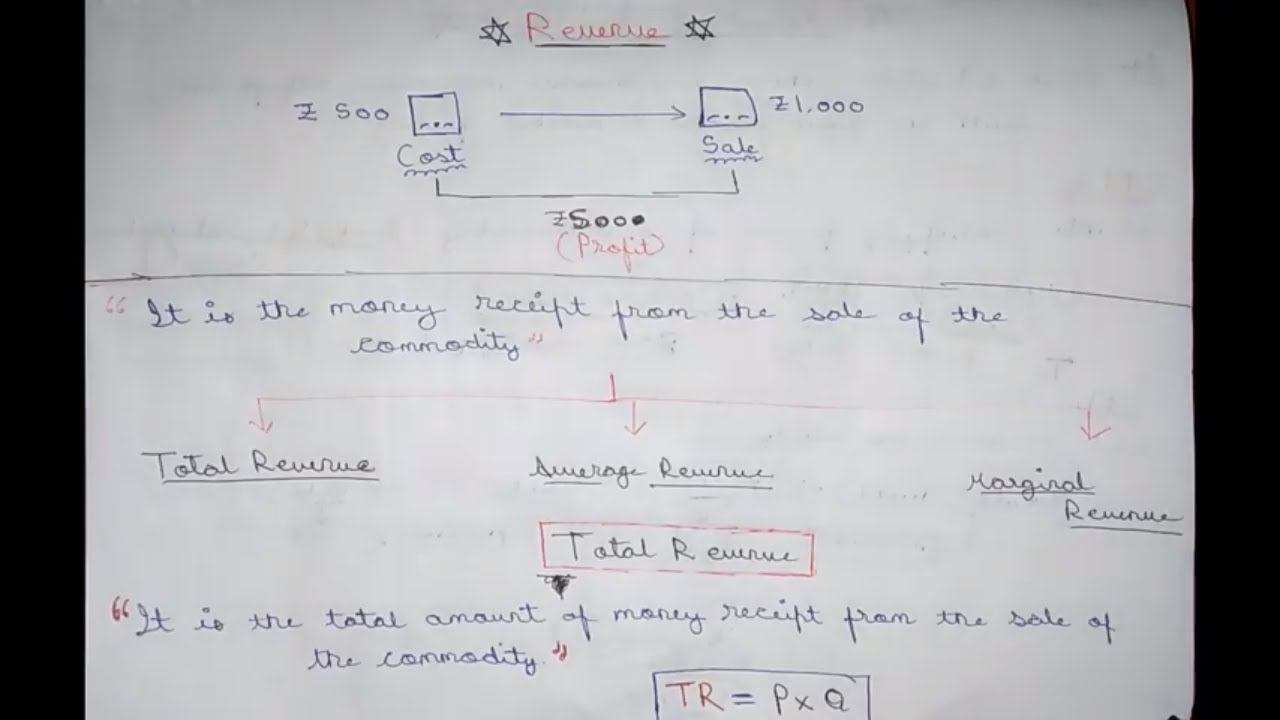 ☆ Revenue ☆
₹ 500
₹1,000
Cost
Sale
₹5000
(Profit)
"It is the money receipt from the sale of the
commodity"
Total Revenue
Average Revenue
Marginal
Revenue
Total Revenue
"It is the total amount of money receipt from the sale of
the commodity."
TR = P x Q